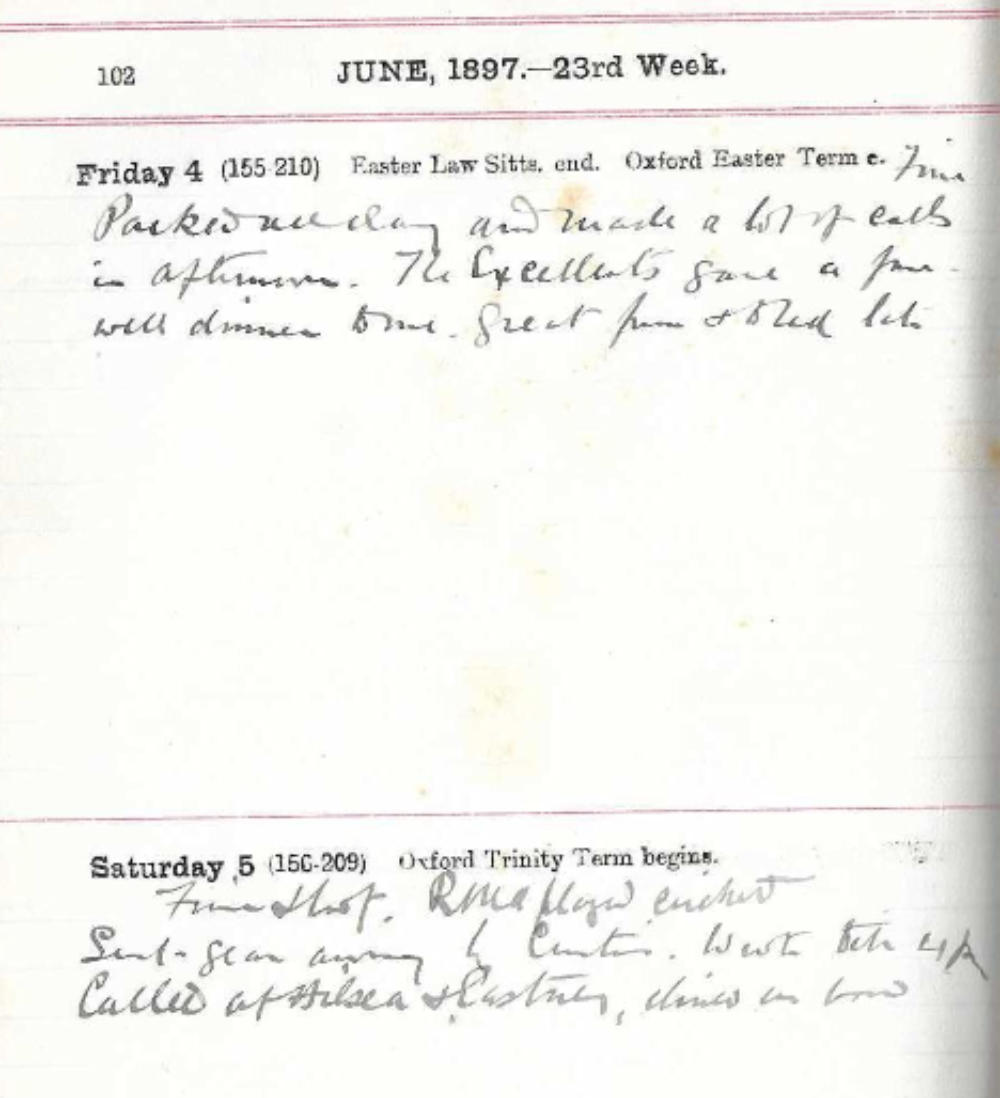 102 JUNE, 1897.—23rd Week.
Friday 4 (155-210) Easter Law Sitts. end. Oxford Easter Term e. Fine
Packed all day and made a lot of calls
in afternoon. The Excellents gave a fare-
well dinner to me. Great fun & to bed late
Saturday 5 (156-209) Oxford Trinity Term begins.
Fine & hot. RMA played cricket
Sent gear away by. Went
Called at Hilsea & Eastney, dined on